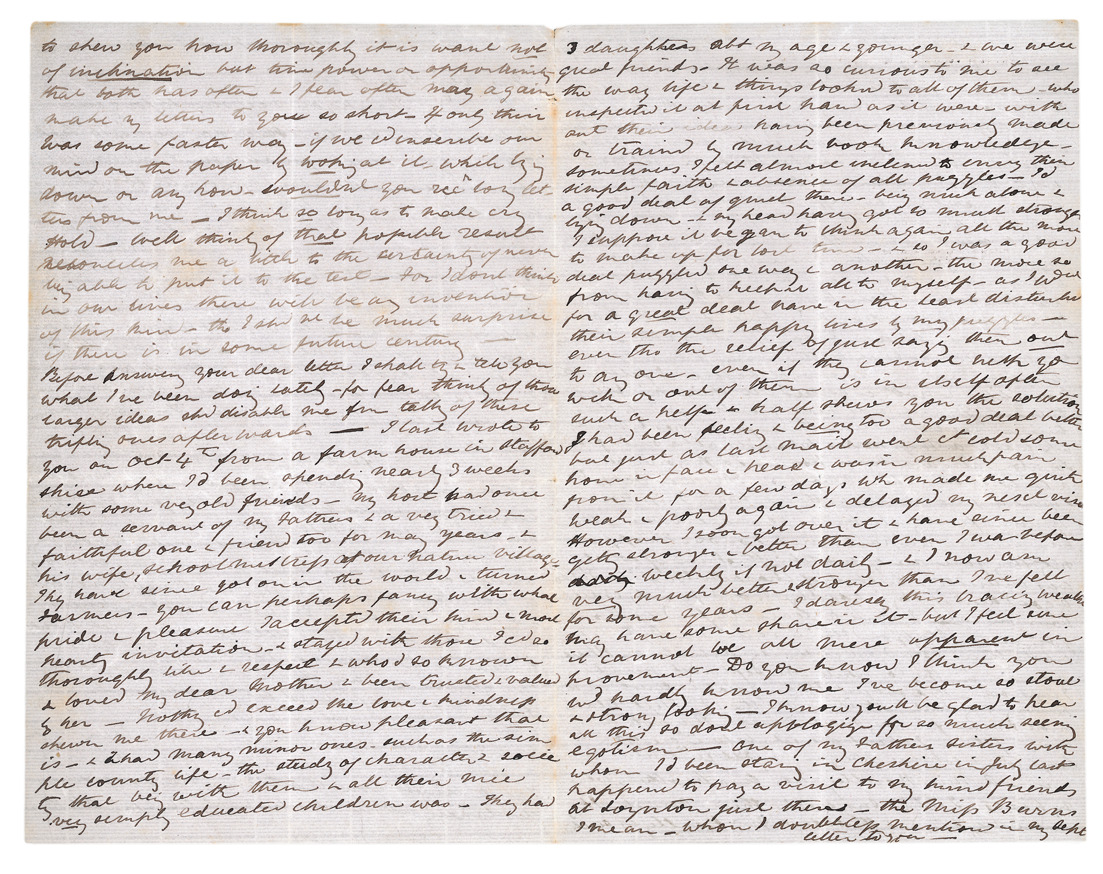 to shew you how thoroughly it is want not
of inclination but time power or opportunity
that both has often & I fear often may again
make my letters to you so short – If only there
was some faster way – if we cd inscribe our
mind on the paper by looking at it while lying
down or any how – wouldn't you recve long let
ters from me – I think so long as to make cry
Hold – well think of that possible result
reconciles me a little to the certainty of never
being able to put it to the test – for I dont think
in our lives there will be any invention
of this kind – tho I shd nt be much surprised
if there is in some future century –
Before answering your dear letter I shall try & tell you
what I've been doing lately – for fear think of those
larger ideas shd disable me for talkg of these
trifling ones afterwards — I last wrote to
you on Oct 4th from a farm house in Stafford
shire where I'd been spending nearly 3 weeks
with some very old friends – my host had once
been a servant of my Fathers & a very tried &
faithful one & friend too for many years – &
his wife, schoolmistress at our native village –
They have since got on in the world & turned
Farmers – you can perhaps fancy with what
pride & pleasure I accepted their kind & most
hearty invitation – & stayed with those I cd so
thoroughly like & respect & who'd so known
& loved my dear Mother & been trusted & valued
by her – Nothg cd exceed the love & kindness
shewn me there – & you know pleasant that
is – & I had many minor ones – such as the sim
ple country life – the study of character & socie
ty that being with them & all their nice
very simply educated children was – They had
3 daughters abt my age & younger – & we were
great friends – It was so curious to me to see
the way life & things look'd to all of them – who
inspected it at first hand as it were – with
out their ideas having been previously made
or traind by much book knowledge –
sometimes I felt almost inclined to envy their
simple faith & absence of all puzzles – I'd
a good deal of quiet there – being much alone &
lying down – & my head having got so much stronger
I suppose it began to think again all the more
to make up for lost time – & so I was a good
deal puzzled one way & another – the more so
from having to keep it all to myself – as I wdnt
for a great deal have in the least disturbd
their simple happy lives by my puzzles –
even tho the relief of just sayg them out
to any one – even if they cannot help yo
with or out of them is in itself often
such a help & half shews you the solution
I had been feeling & being too a good deal better
but just as last maid went I cold some
how in face & head & was in much pain
from it for a few days wh made me quite
weak & poorly again & delayed my next visit
However I soon got over it & have since been
gettg stronger & better than even I was before
weekly if not daily – & I now am
very much better & stronger than I've felt
for some years – I daresay this bracing weather
may have some share in it – but I feel sure
it cannot be all mere apparent im
provement – Do you know I think you
wd hardly know me I've become so stout
& strong looking – I know you'll be glad to hear
all this so dont apologise for so much seeming
egotism — One of my Fathers sisters with
whom I'd been staying in Cheshire in July last
happened to pay a visit to my kind friends
at Poynton just then – the Miss Burns
I mean – whom I doubtless mention in my last
letter to you –